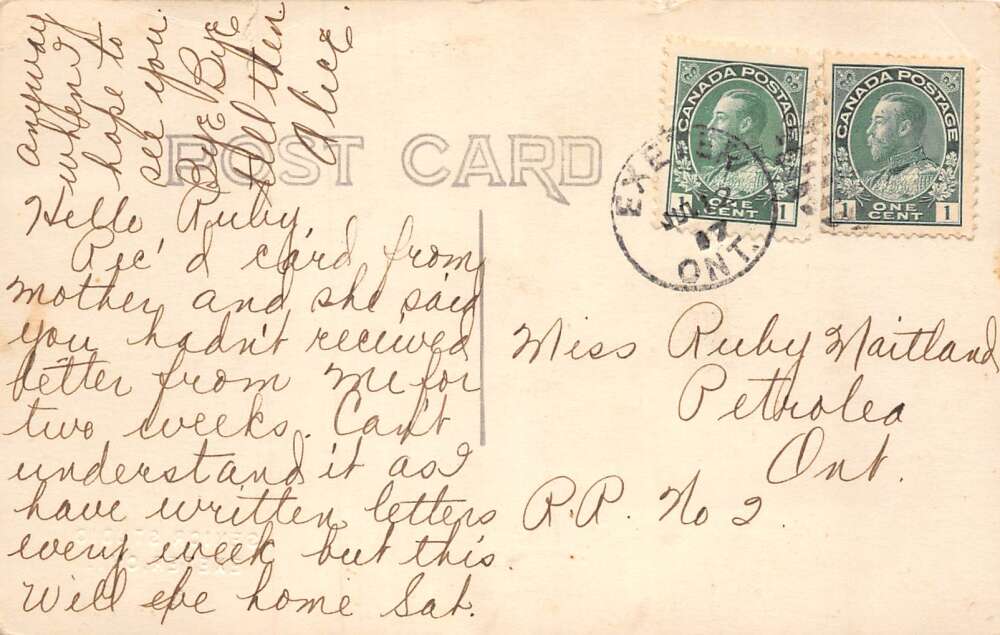 POST CARD
Hello Ruby,
Rec'd card from
mother and she said
you hadn't received
letter from me for
two weeks. Can't
understand it as I
have written letters
every week but this.
Will be home Sat.
anyway
when I
hope to
see you.
Bye Bye
till then
Alice
CANADA POSTAGE
1 ONE CENT 1
CANADA POSTAGE
1 ONE CENT 1
EXETER
JUL 12
17
ONT.
Miss Ruby Maitland
Petrolea
Ont.
R.R. No 2.